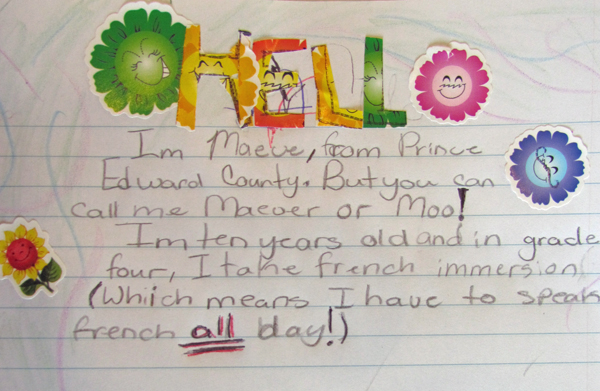 HELLO
Im Maeve, from Prince
Edward County. But you can
call me Maeoer or Moo!
Im ten years old and in grade
four, I take french immersion
(Whiich means I have to speak
french all day!)